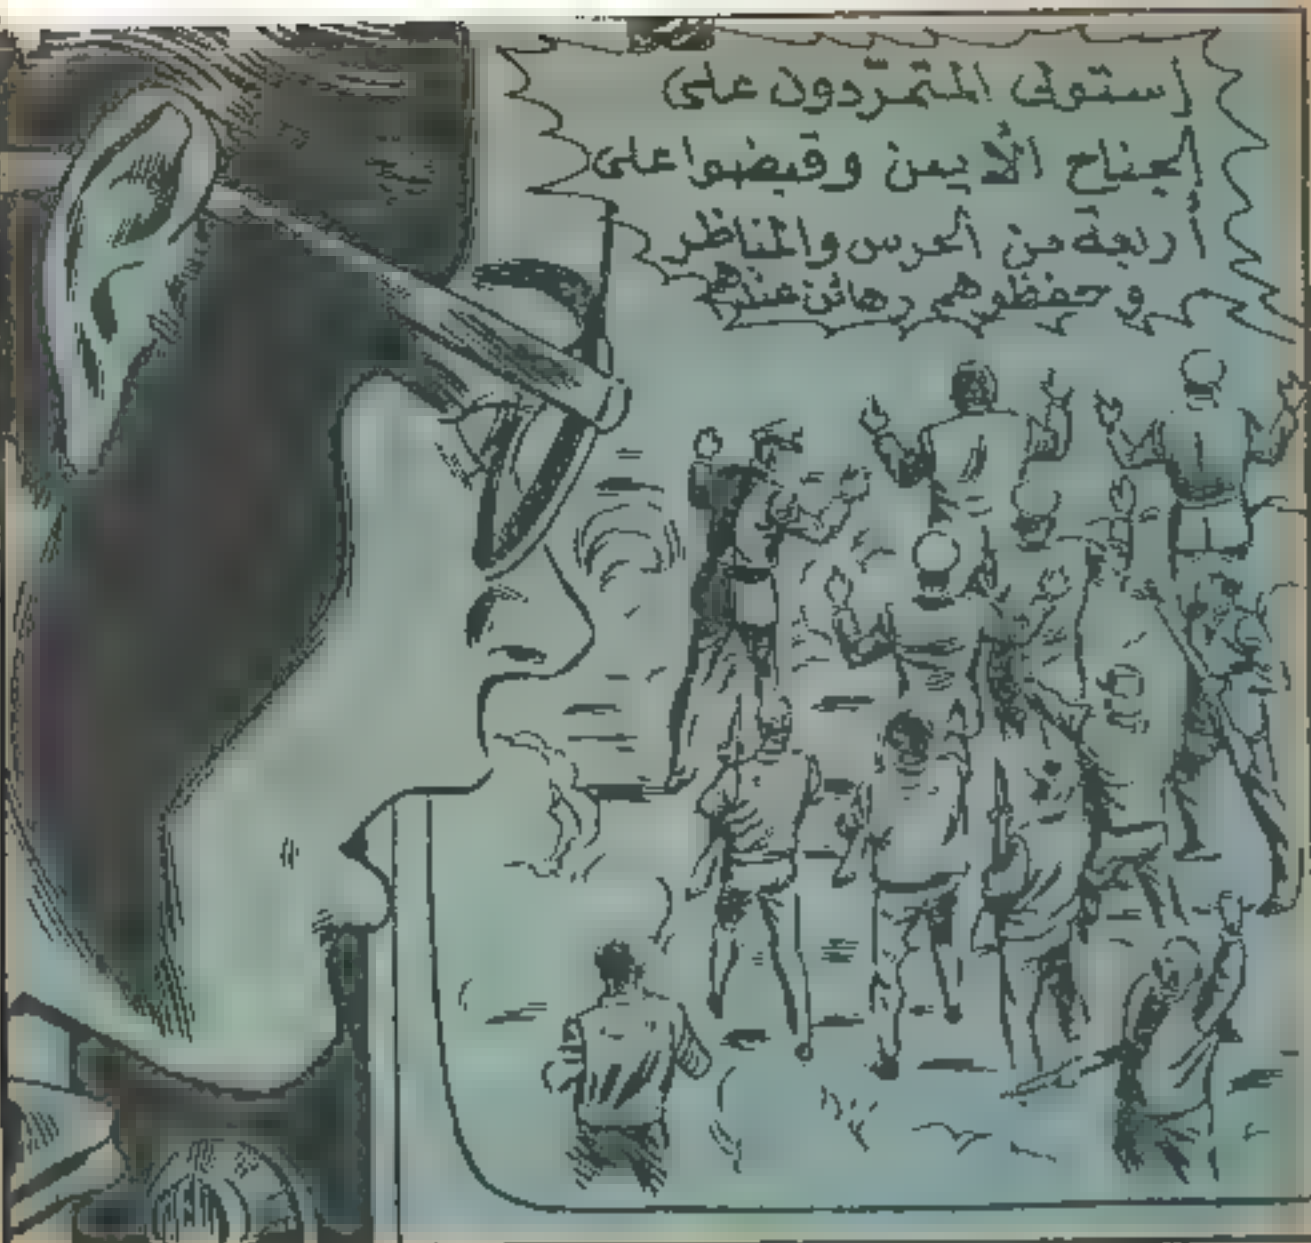 إستولى المتمرّدون على
الجناح الأيمن وقبضوا على
أربعة من الحرس والمناظر
وحفظوهم رهائن عندهم